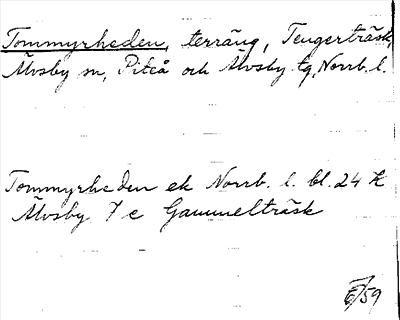 Tommyrheden, terräng, Tengerträsk,
Älvsby sn, Piteå och Älvsby tg, Norrb. l.
Tommyrheden ek Norrb. l. bl. 24 K
Älvsby 7 c Gammelträsk
/59